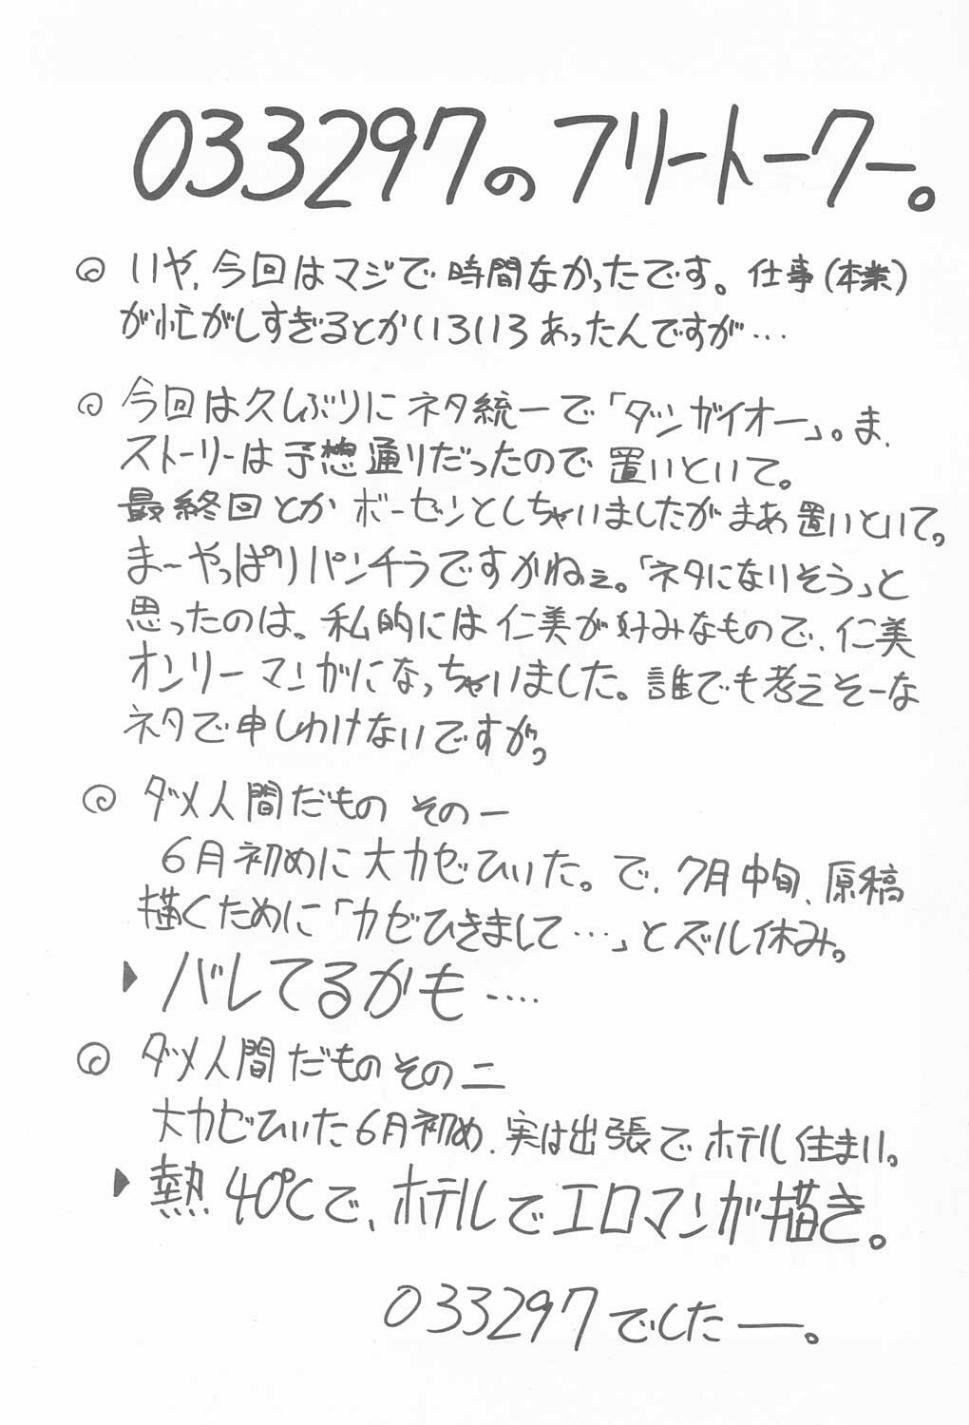 033297のフリートーク—。
◎ いや、今回はマジで時間なかったです。仕事(本業)
が忙がしすぎるとかいろいろあったんですが…
◎ 今回は久しぶりにネタ統一で「ダンガイオー」。ま、
ストーリーは予想通りだったので置いといて。
最終回とかボーゼンとしちゃいましたがまあ置いといて。
まーやっぱりパンチラですかねぇ。「ネタになりそう」と
思ったのは。私的には仁美が好みなもので、仁美
オンリーマンガになっちゃいました。誰でも考えそーな
ネタで申しわけないですが。
◎ ダメ人間だもの その一
6月初めに大カゼひいた。で、7月中旬、原稿
描くために「カゼひきまして…」とズル休み。
▶ バレてるかも‥‥
◎ ダメ人間だもの その二
大カゼひいた6月初め、実は出張でホテル住まい。
▶ 熱40℃で、ホテルでエロマンガ描き。
033297でしたー。